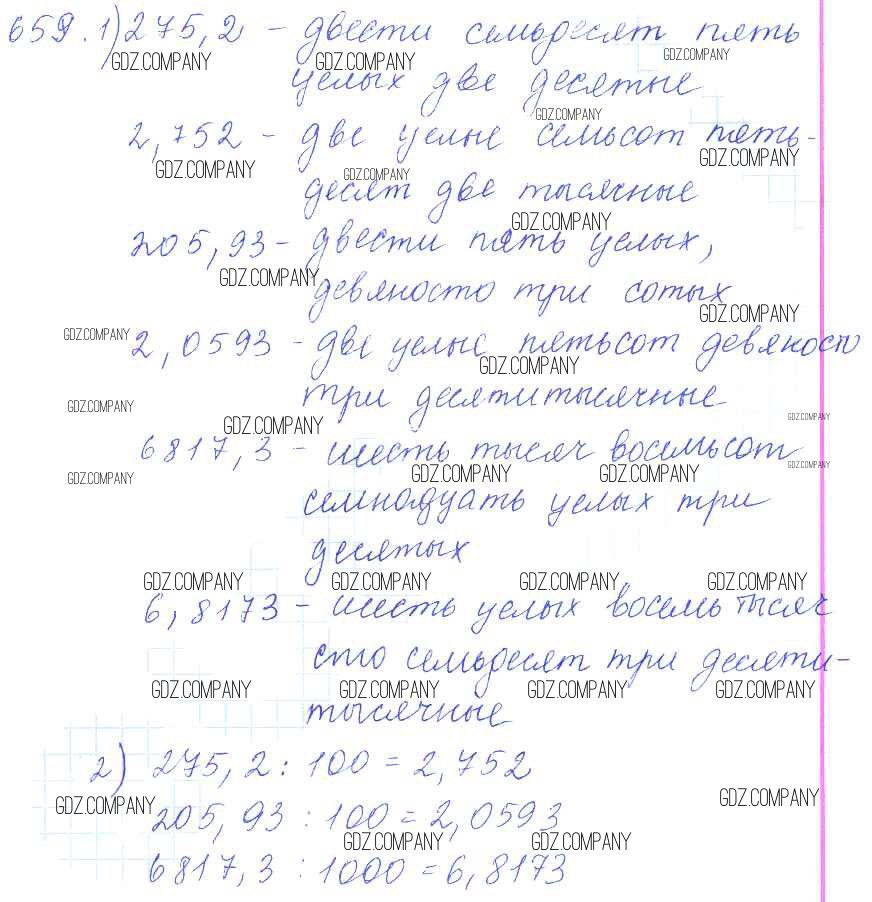 659. 1) 275,2 - двести семьдесят пять
GDZ.COMPANY GDZ.COMPANY GDZ.COMPANY
целых две десятые
GDZ.COMPANY
2,752 - две целые семьсот пять-
GDZ.COMPANY GDZ.COMPANY GDZ.COMPANY
десят две тысячные
GDZ.COMPANY
205,93 - двести пять целых,
GDZ.COMPANY
девяносто три сотых
GDZ.COMPANY
GDZ.COMPANY 2,0593 - две целые пятьсот девяносто
GDZ.COMPANY
три десятитысячные
GDZ.COMPANY GDZ.COMPANY GDZ.COMPANY
6817,3 - шесть тысяч восемьсот
GDZ.COMPANY GDZ.COMPANY GDZ.COMPANY GDZ.COMPANY
семнадцать целых три
десятых
GDZ.COMPANY GDZ.COMPANY GDZ.COMPANY GDZ.COMPANY
6,8173 - шесть целых восемь тысяч
сто семьдесят три десяти-
GDZ.COMPANY GDZ.COMPANY GDZ.COMPANY GDZ.COMPANY
тысячные
2) 275,2 : 100 = 2,752
GDZ.COMPANY GDZ.COMPANY
205,93 : 100 = 2,0593
GDZ.COMPANY GDZ.COMPANY
6817,3 : 1000 = 6,8173